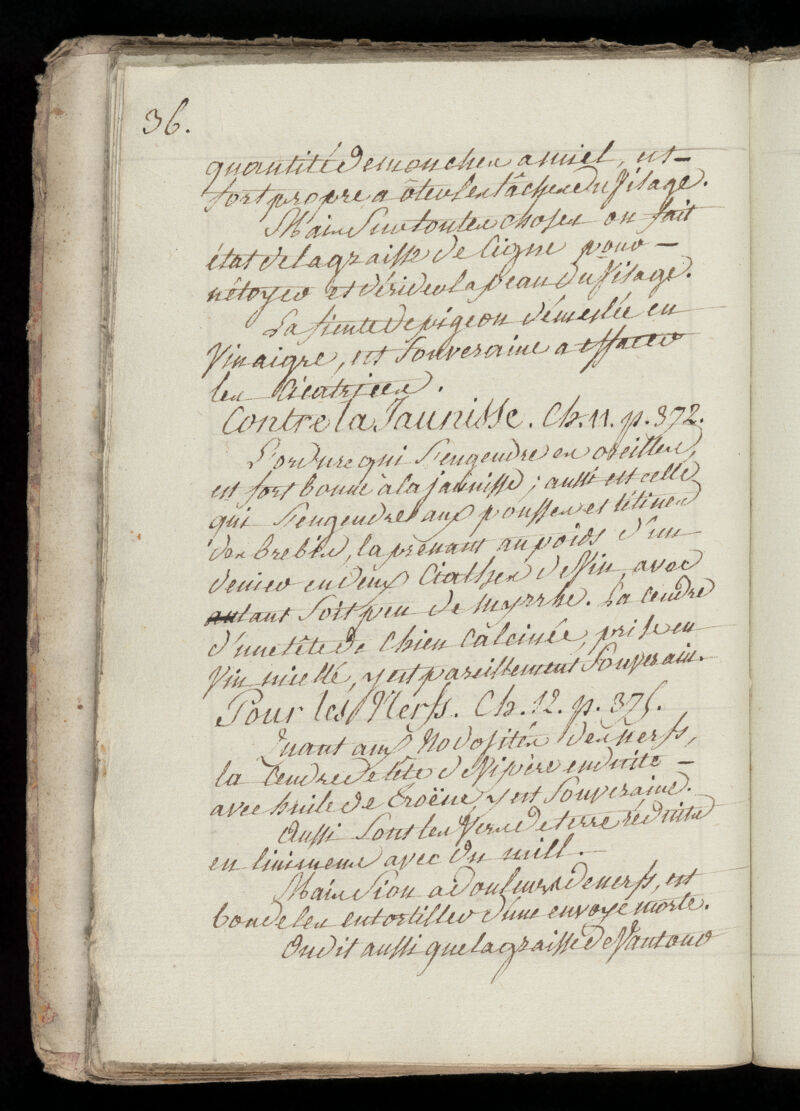 36.
quantité de mouches a miel, est
fort propre a ôter les tâches du Visage.
Mais Sur toutes choses on fait
état de la graisse de Cigne pour
nêtoyer et dérider la peau du Visage.
La fiente de pigeon démeslée en
Vinaigre, est Souveraine a effacer
les Cicatrices.
Contre la Jaunisse. Ch. 11. p. 372.
L'ordure qui S'engendre es oreilles,
est fort bonne à la jaunisse ; aussi est celle
qui S'engendre aux pousses et tétines
des brebis, la prenant au poids d'un
denier en deux Ciathes de Vin avec
tant Soit peu de myrrhe. La Cendre
d'une tête de Chien Calcinée, prise en
Vin miellé, y est pareillement Souverain.
Pour les Nerfs. Ch. 12. p. 375.
Quant aux Nodosités des nerfs,
la Cendre de tête de Vipère enduite
avec huile de troëne, y est Souveraine.
Aussi Sont les Vers de terre réduits
en liniment avec du mill.
Mais Si on a douleurs de nerfs, est
bon de les entortiller d'une envoye morte.
On dit aussi que la graisse de Vautour